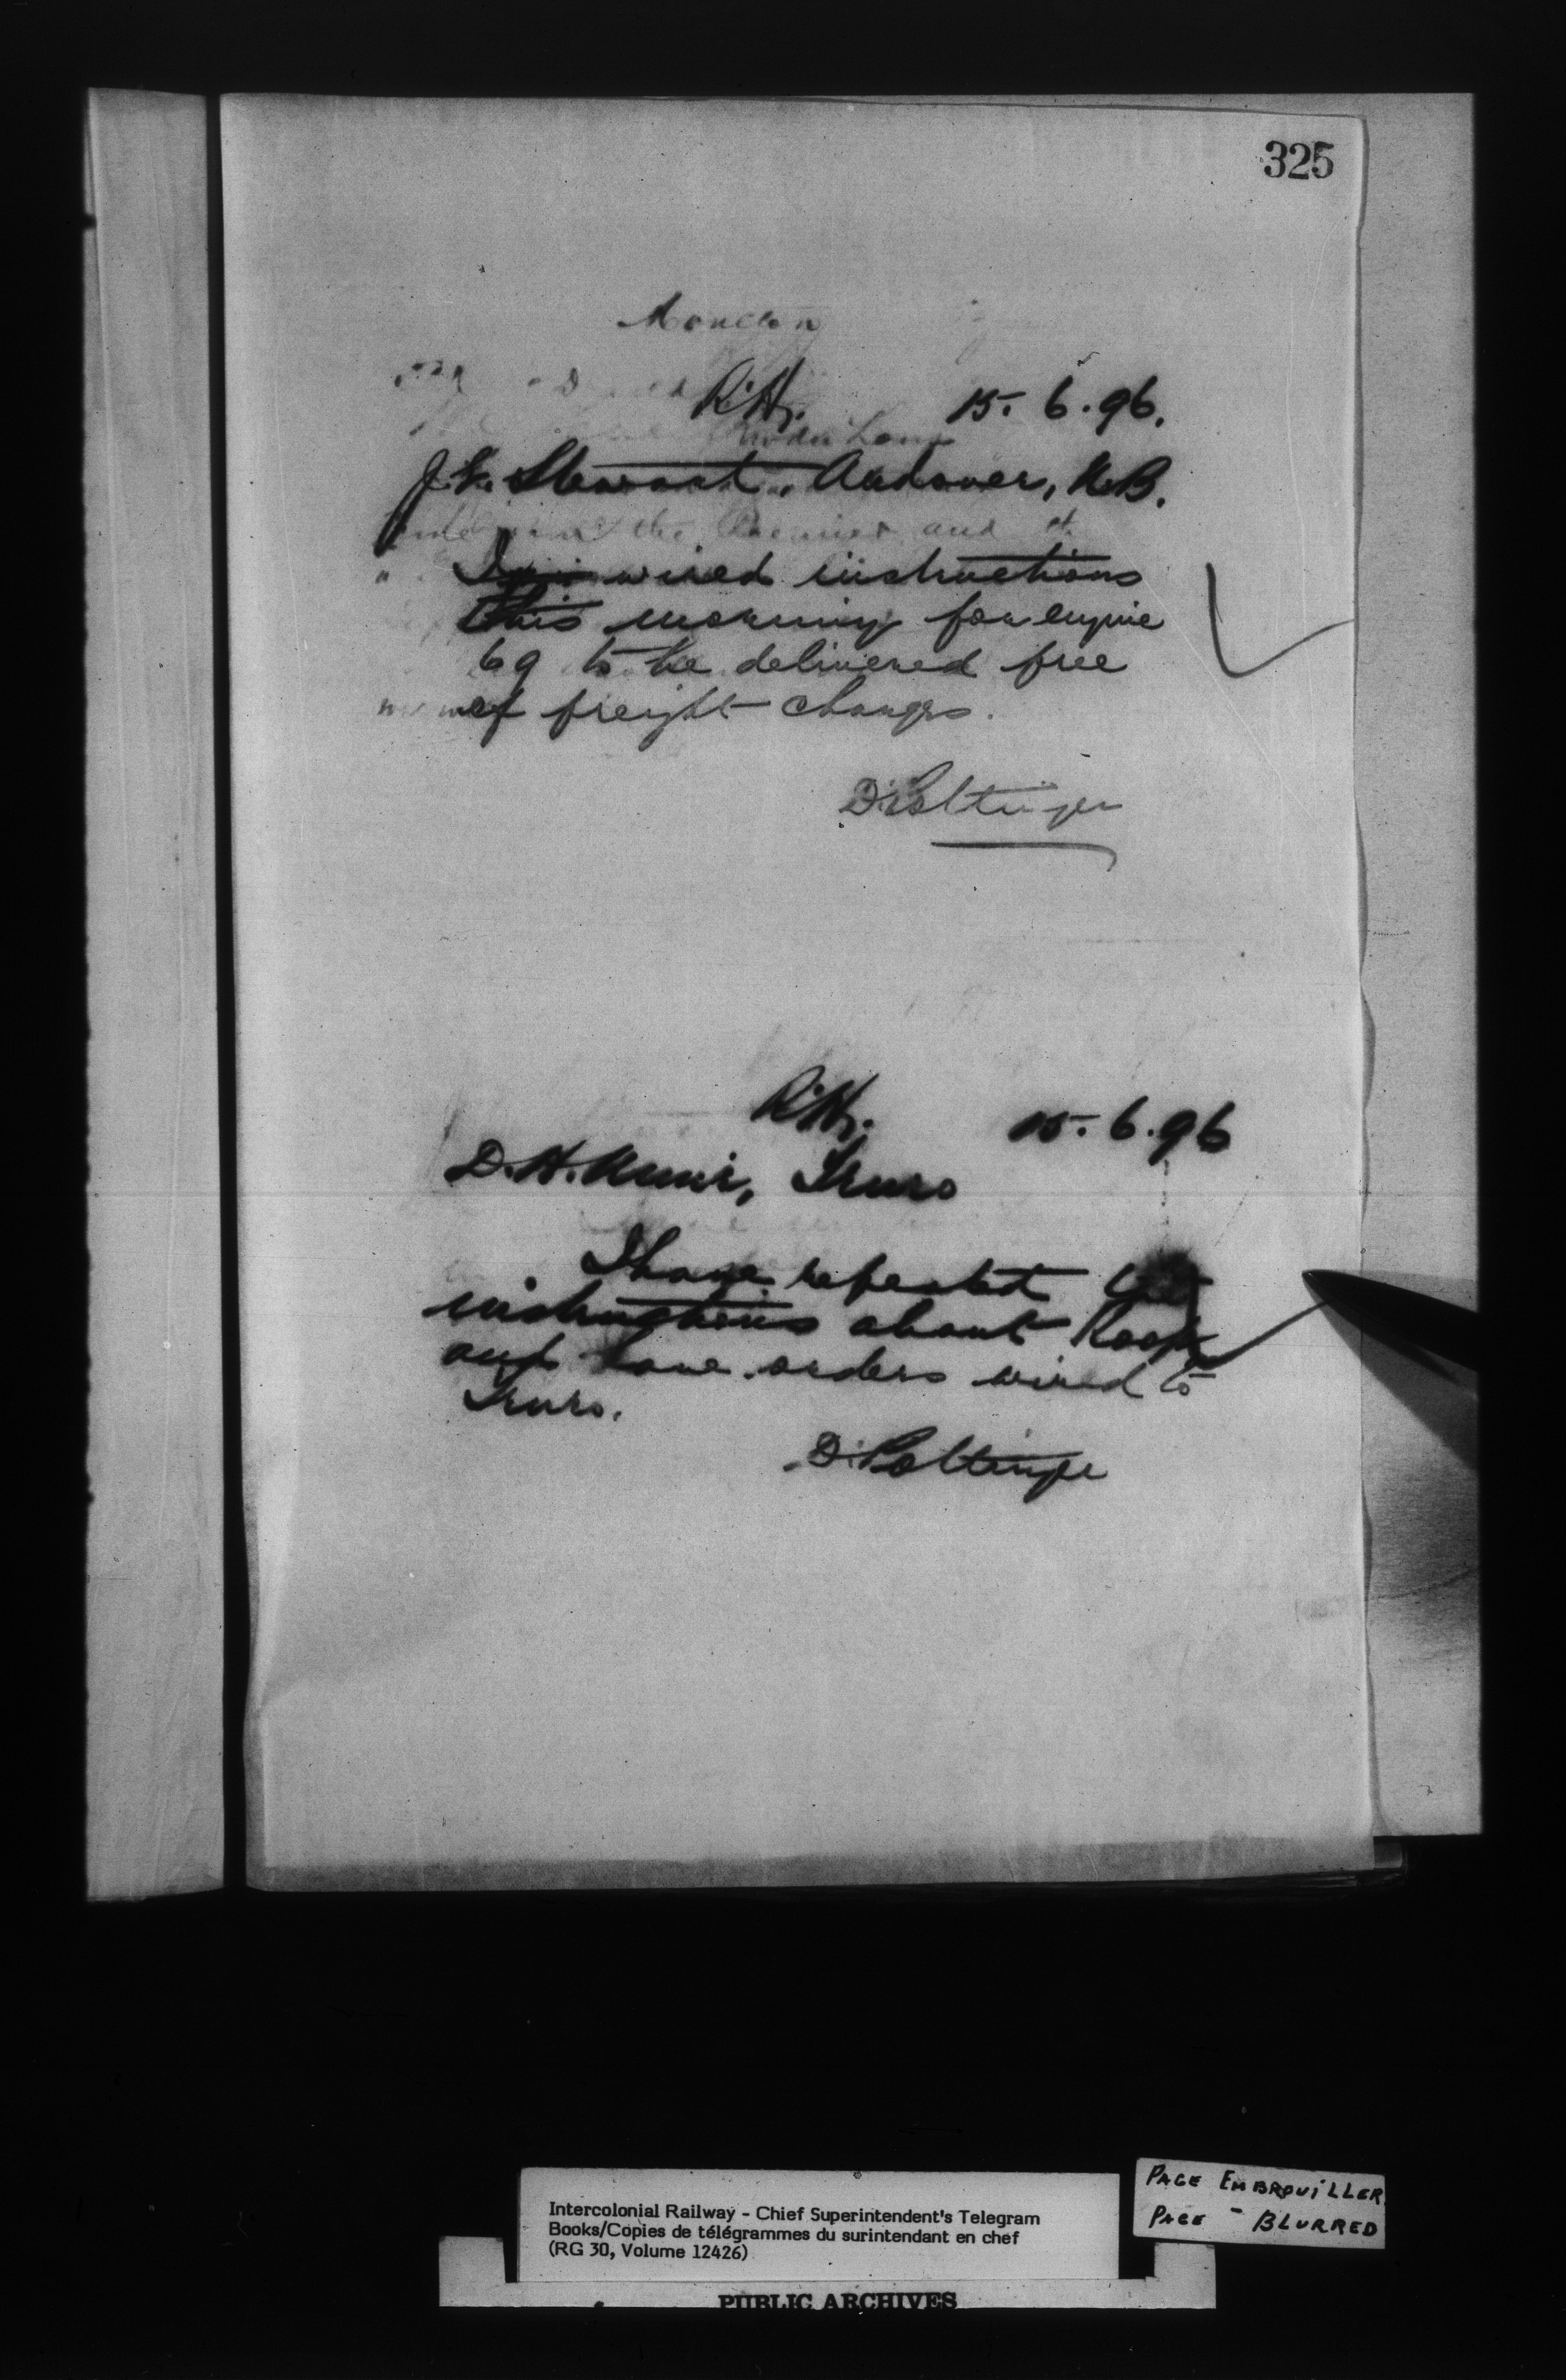 325
Moncton
R.H. 15.6.96.
J.F. Stewart, Andover, N.B.
the Premier and
I wired instructions
this morning for engine
69 to be delivered free
of freight charges.
D. Pottinger
R.H. 15.6.96
D.H. Muir, Truro
I have repeated
instructions about
and have orders wired to
Truro.
D. Pottinger
Intercolonial Railway - Chief Superintendent's Telegram
Books/Copies de télégrammes du surintendant en chef
(RG 30, Volume 12426)
PAGE EMBROUILLER.
PAGE - BLURRED
PUBLIC ARCHIVES